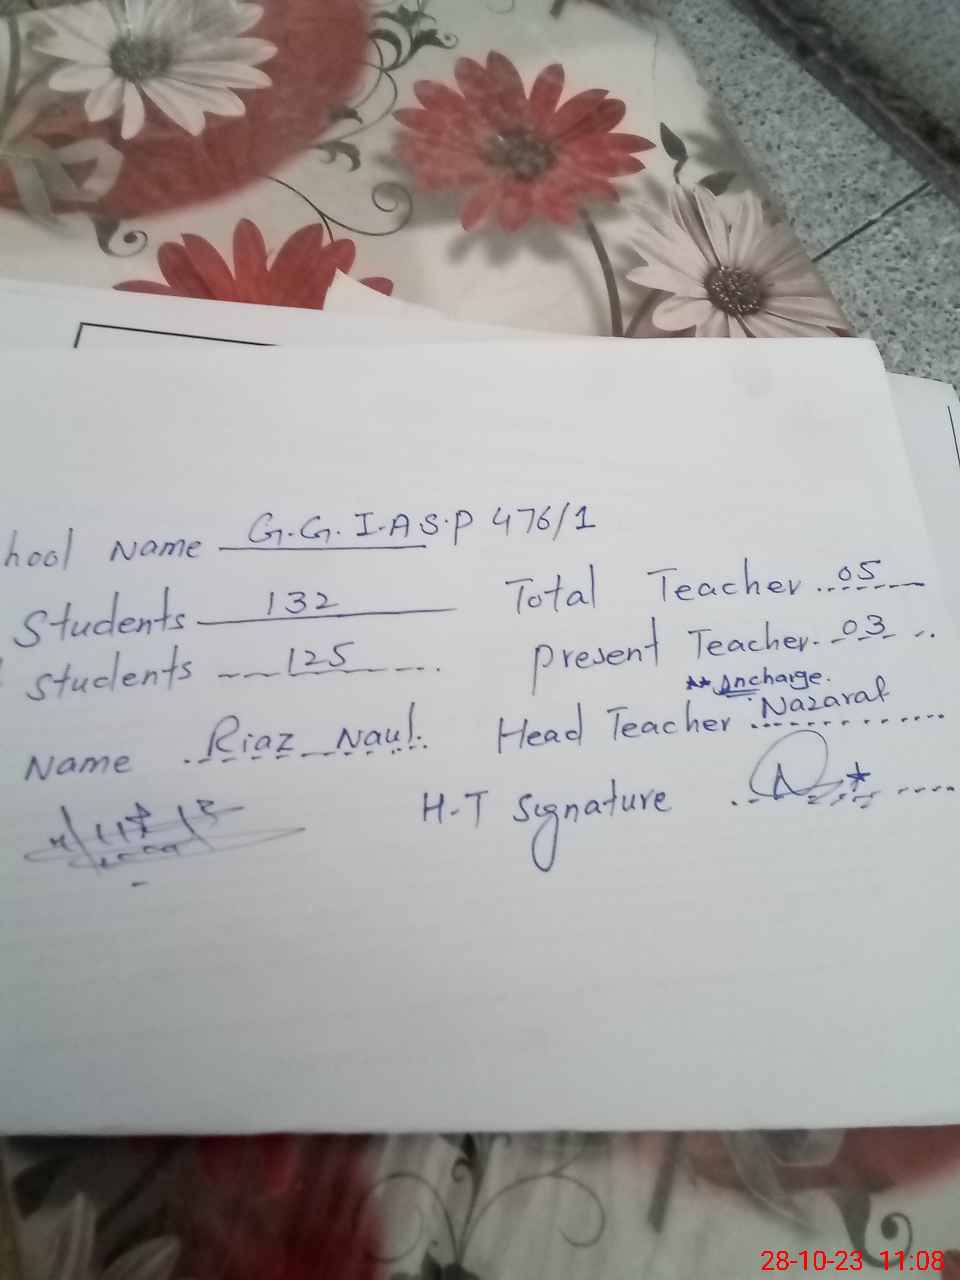 hool Name G.G.I.A.S.P 476/1
Students 132 Total Teacher 05
Students 125 Present Teacher 03
** Incharge.
Name Riaz Head Teacher Nazaraf
H-T Signature
28-10-23 11:08